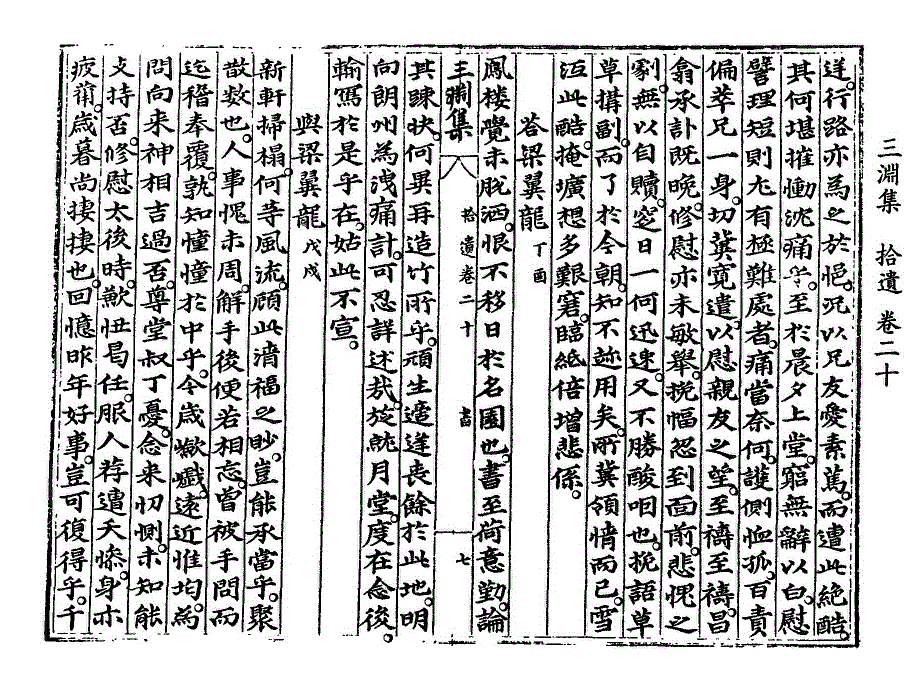 三淵集　拾遺　卷二十
逆。行路亦爲之於悒。况以兄友愛素篤。而遭此絶酷。
其何堪摧慟沈痛乎。至於晨夕上堂。窮無辭以白。慰
譬理短則尤有極難處者。痛當奈何。護側恤孤。百責
偏萃兄一身。切冀寬遣。以慰親友之望。至禱至禱。昌
翕承訃旣晩。修慰亦未敏擧。挽幅忽到面前。悲愧之
劇。無以自贖。窆日一何迅速。又不勝酸咽也。挽語草
草搆副。而了於今朝。知不趂用矣。所冀領情而已。雪
沍此酷。掩壙想多艱窘。臨紙倍增悲係。
答梁翼龍 丁酉
鳳樓覺未脫洒。恨不移日於名園也。書至荷意勤。論
三淵集 拾遺卷二十 書 七
其踈快。何異再造竹所乎。頑生遭逢喪餘於此地。明
向朗州爲洩痛計。可忍詳述哉。旋旆月堂。度在念後。
輸寫於是乎在。姑此不宣。
與梁翼龍 戊戌
新軒掃榻。何等風流。顧此淸福之眇。豈能承當乎。聚
散數也。人事愧未周。解手後便若相忘。曾被手問而
迄稽奉覆。孰知憧憧於中乎。今歲歉殲。遠近惟均。爲
問向來神相吉過否。尊堂叔丁憂。念來忉惻。未知能
支持否。修慰太後時。歉忸曷任。服人荐遭夭慘。身亦
疲薾。歲暮尙捿捿也。回憶昨年好事。豈可復得乎。千